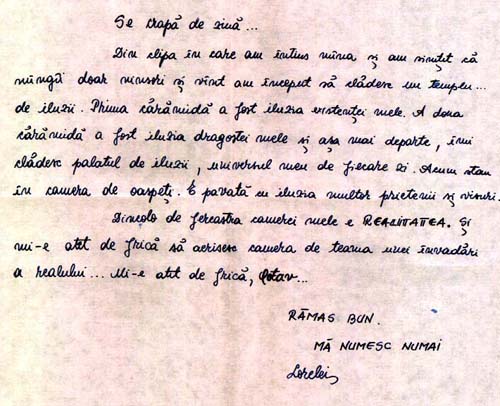 Se crapă de ziuă...
Din clipa în care am întins mîna și am simțit că
mîngîi doar nisipuri și vînt am început să clădesc un templu...
de iluzii. Prima cărămidă a fost iluzia existenței mele. A doua
cărămidă a fost iluzia dragostei mele și așa mai departe, îmi
clădesc palatul de iluzii, universul meu de fiecare zi. Acum stau
în camera de oaspeți. E pavată cu iluzia multor prietenii și visuri.
Dincolo de fereastra camerei mele e REALITATEA. Și
mi-e atît de frică să aerisesc camera de teama unei invadări
a realului... Mi-e atît de frică, Octav...
RĂMAS BUN.
MĂ NUMESC NUMAI
Lorelei